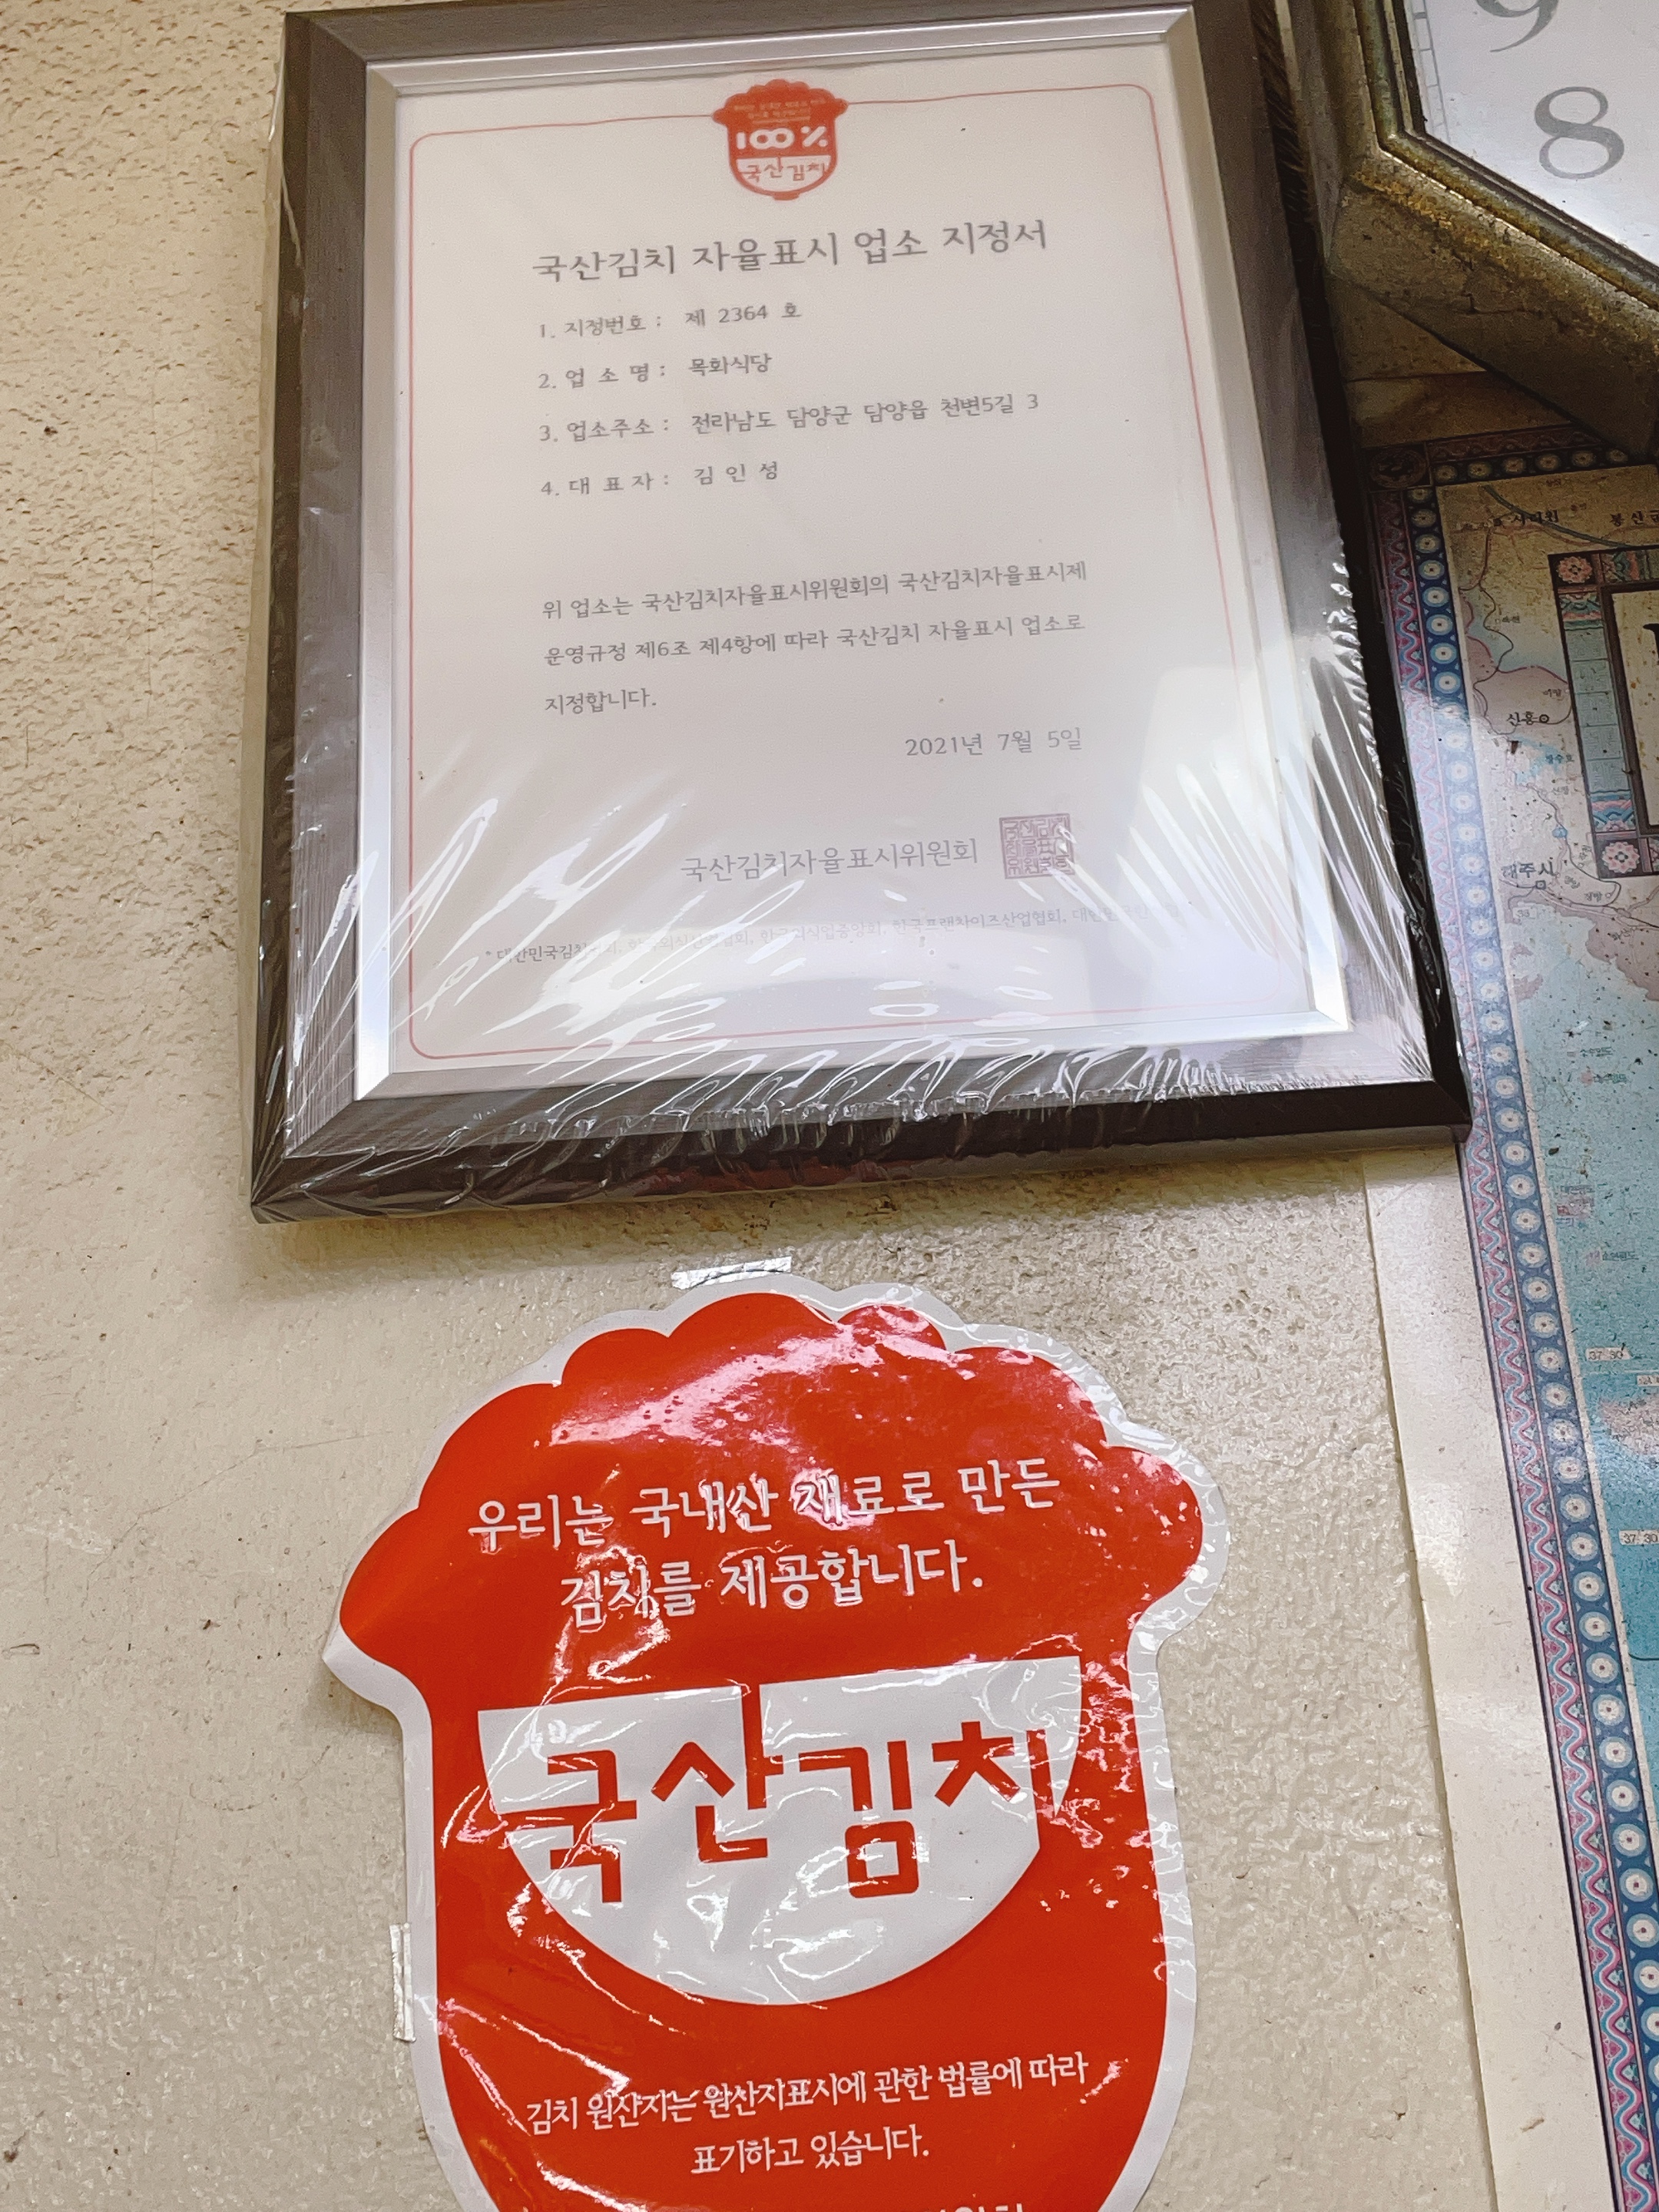 100%
국산김치
국산김치 자율표시 업소 지정서
1. 지정번호 : 제 2364 호
2. 업 소 명 : 목화식당
3. 업소주소 : 전라남도 담양군 담양읍 천변5길 3
4. 대 표 자 : 김 인 성
위 업소는 국산김치자율표시위원회의 국산김치자율표시제
운영규정 제6조 제4항에 따라 국산김치 자율표시 업소로
지정합니다.
2021년 7월 5일
국산김치자율표시위원회
한국외식업중앙회, 한국프랜차이즈산업협회,
우리는 국내산 재료로 만든
김치를 제공합니다.
국산김치
김치 원산지는 원산지표시에 관한 법률에 따라
표기하고 있습니다.
9
8
사리원
신흥
37 30